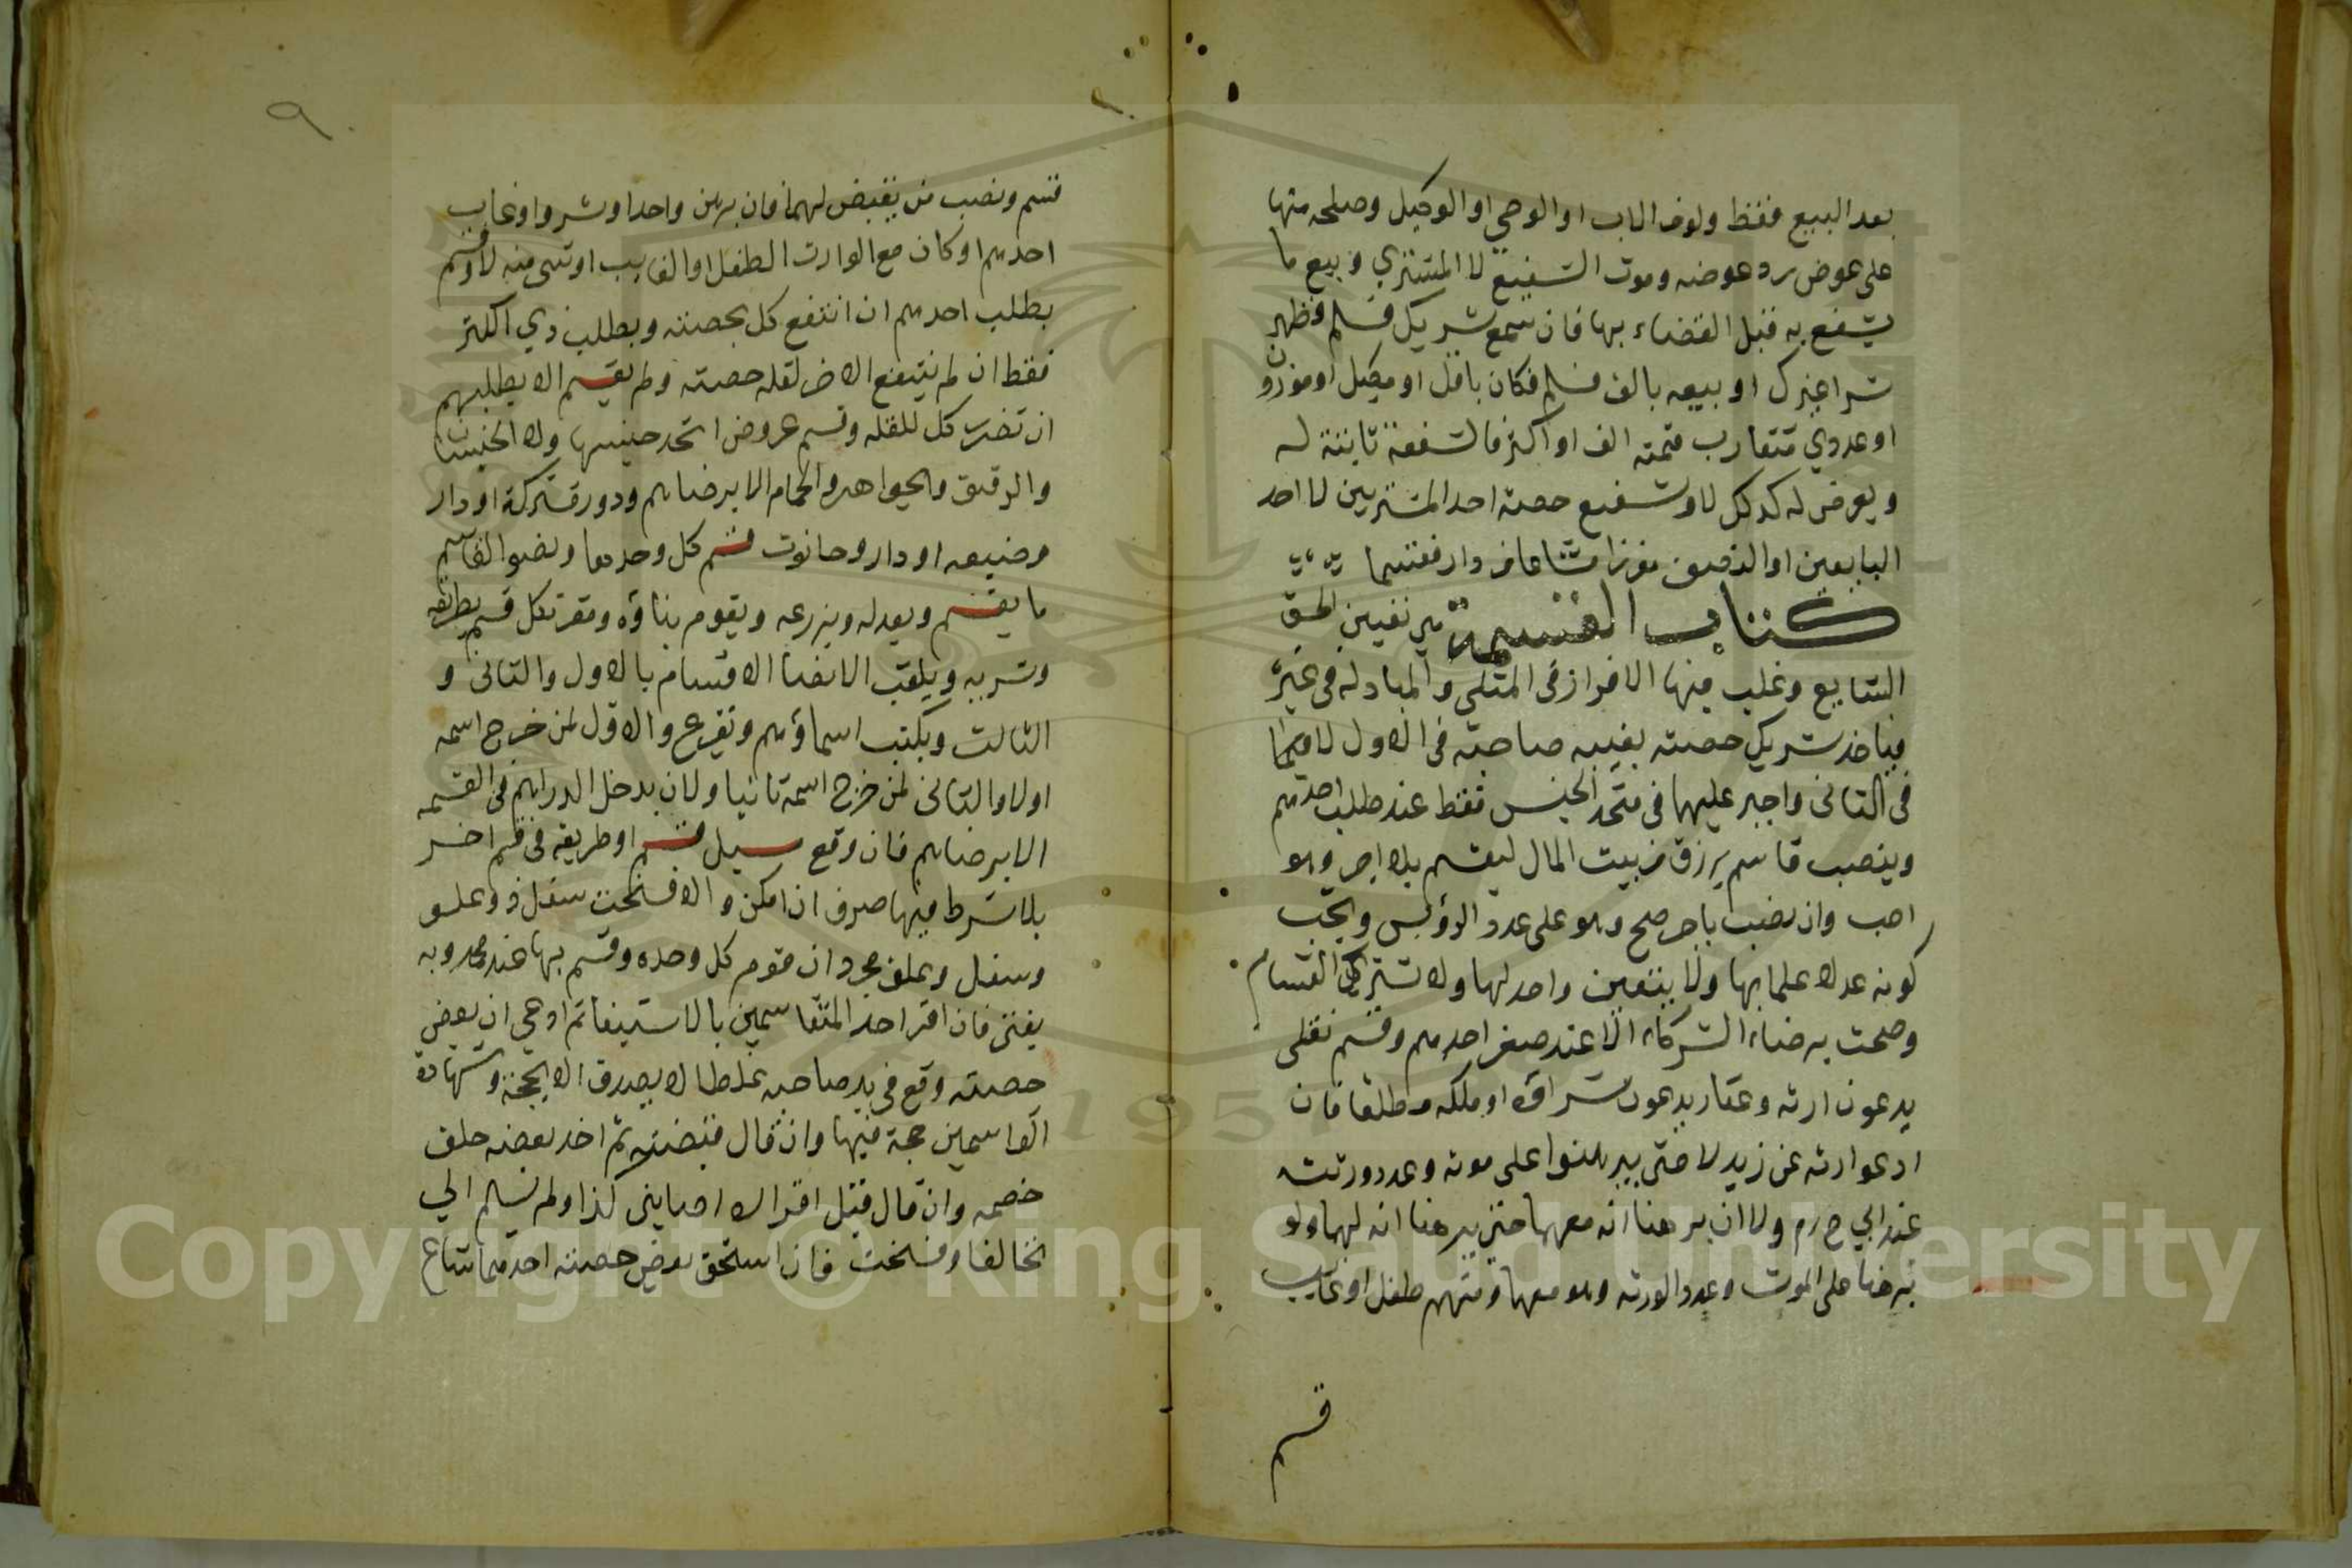 بعد البيع فقط ولو من الاب او الوصي او الوكيل وصلحه منها
على عوض رد عوضه وموت الشفيع لا المشتري و بيع ما
يشفع به قبل القضاء بها فان سمع شريك فسلم فظهر
شرا غيرك او بيعه بالف فسلم فكان باقل او مكيل او موزون
او عددي متقارب قيمته الف او اكثر فالشفعة ثابتة له
و بعرض له كذلك لا وشفيع حصة احد المشتريين لا احد
البايعين او النصف مفرزا مشاعا من دار فقسما
كتاب القسمة هي تعيين الحق
الشايع وغلب فيها الافراز في المثلي والمبادلة في غيره
فياخذ شريك حصته بغيبة صاحبه في الاول لا
في الثانى واجبر عليها في متحد الجنس فقط عند طلب احدهم
وينصب قاسم يرزق من بيت المال ليقسم بلا اجر وهو
احب وان نصب باجر صح وهو على عدد الرؤس ويجب
كونه عدلا علما بها ولا يتعين واحد لها ولا تشترك القسام
وصحت برضاء الشركاء الا عند صغر احدهم وقسم نقلى
يدعون ارثه وعقار يدعون شراؤه او ملكه مطلقا فان
ادعوا ارثه عن زيد لا حتى يبرهنوا على موته وعدد ورثته
عند ابي ح رم ولا ان برهنا انه معهما حتى يبرهنا انه لهما ولو
برهنا على الموت وعدد الورثه وهو معهما ومنهم طفل او غايب
قسم
٩٠
قسم ونصب من يقبض لهما فان برهن واحد او شروا وغاب
احدهم او كان مع الوارث الطفل او الغايب او شى منه لا وقسم
بطلب احدهم ان انتفع كل بحصته وبطلب ذي اكثر
فقط ان لم ينتفع الاخر لقلة حصته ولم يقسم الا بطلبهم
ان تضرر كل للقله وقسم عروض اتحد جنسها ولا الجنسان
والرقيق والجواهر والحمام الا برضاهم ودور مشتركة او دار
وضيعه او دار وحانوت قسم كل وحدها ويصور القاسم
ما يقسم ويعدله ويزرعه ويقوم بناؤه ويفرز كل قسم بطريقه
وشربه ويلقب الانصبا الاقسام بالاول والثانى و
الثالث ويكتب اسماؤهم وتقرع والاول لمن خرج اسمه
اولا والثانى لمن خرج اسمه ثانيا ولا يدخل الدراهم في القسمه
الا برضاهم فان وقع سيل قسم او طريقه في قسم اخر
بلا شرط فيها صرف ان امكن والا فسخت سفل ذو علو
وسفل وعلو مجرد ان قوم كل وحده وقسم بها عند محمد وبه
يفتى فان اقر احد المتقاسمين بالاستيفا ثم ادعى ان بعض
حصته وقع في يد صاحبه غلطا لا يصدق الا بحجة وشهادة
القاسمين حجة فيها وان قال قبضته ثم اخذ بعضه حلف
خصمه وان قال قبل اقراره اصابنى كذا ولم يسلم الي
تخالفا وفسخت فان استحق بعض حصته احدهما شاع